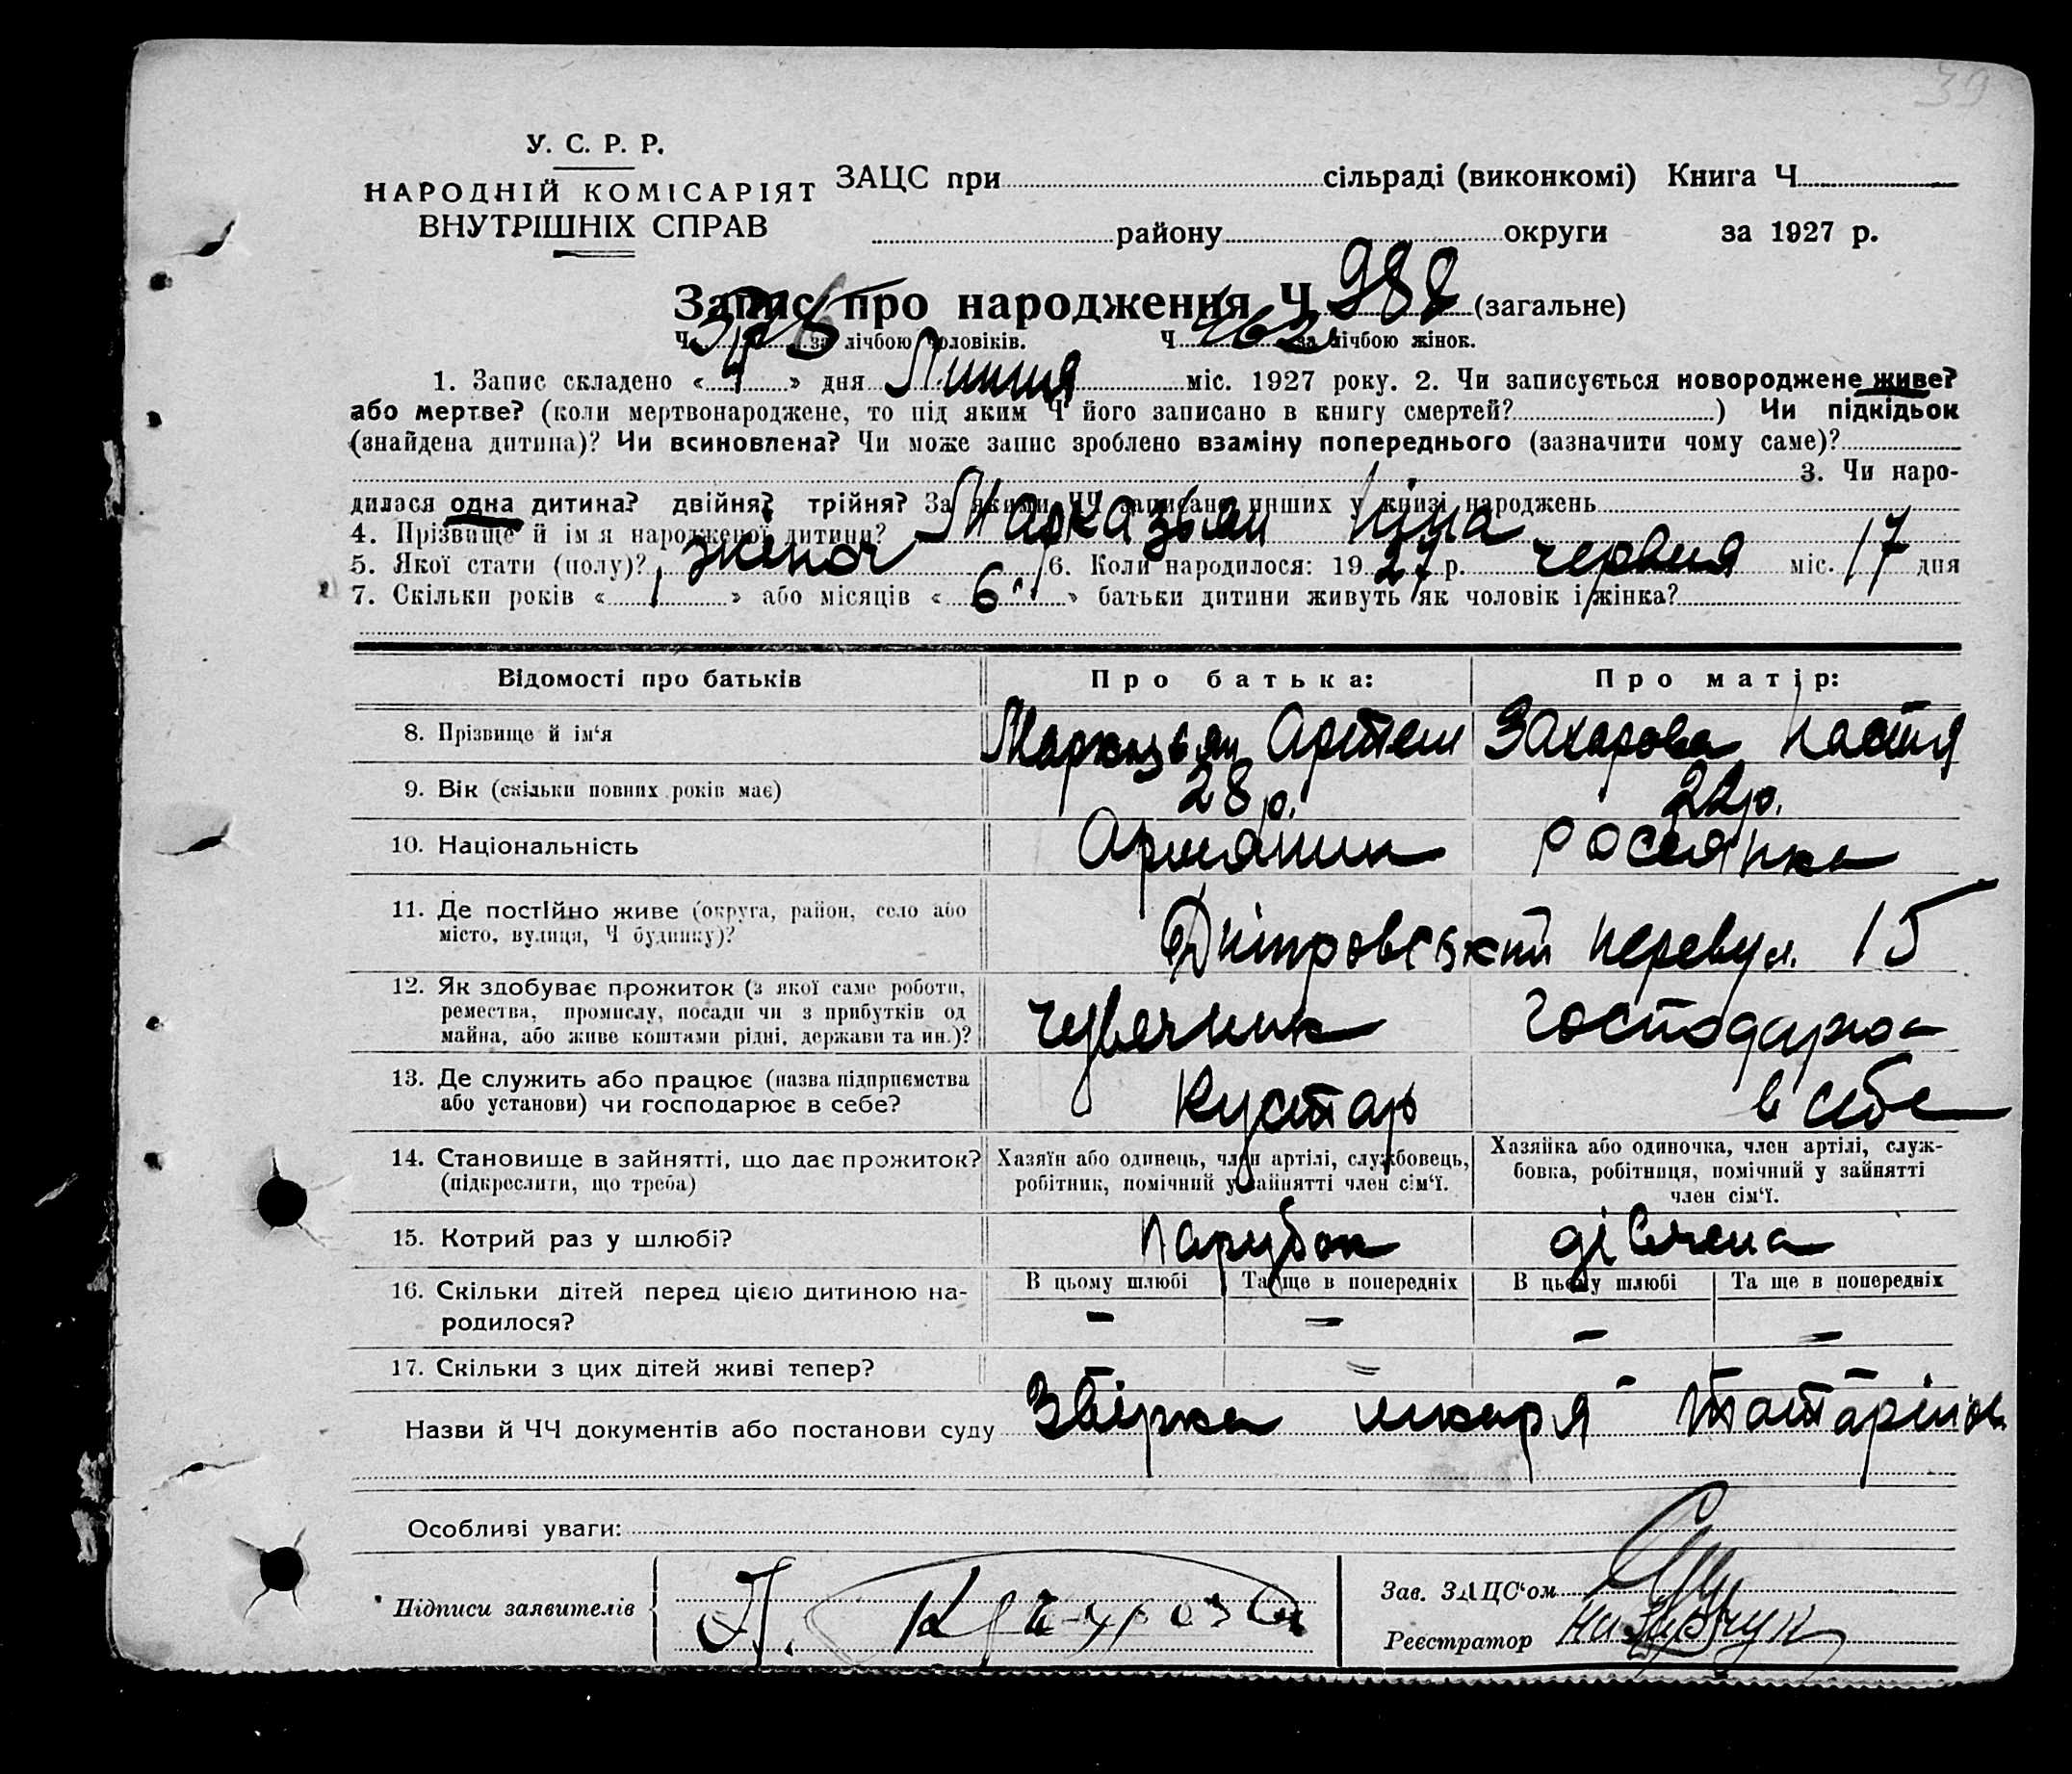 39
У. С. Р. Р.
НАРОДНІЙ КОМІСАРІЯТ
ВНУТРІШНІХ СПРАВ
ЗАЦС при сільраді (виконкомі) Книга Ч.
району округи за 1927 р.
Запис про народження Ч. 988 (загальне)
Ч. за лічбою чоловіків. Ч. 462 за лічбою жінок.
1. Запис складено « 1 » дня Липня міс. 1927 року. 2. Чи записується новороджене живе?
або мертве? (коли мертвонароджене, то під яким Ч його записано в книгу смертей? ) Чи підкідьок
(знайдена дитина)? Чи всиновлена? Чи може запис зроблено взаміну попереднього (зазначити чому саме)?
3. Чи наро-
дилася одна дитина? двійня? трійня? За якими ЧЧ записано инших у книзі народжень
4. Прізвище й ім я народженої дитини? Марказьян Ніна
5. Якої стати (полу)? жіноч 6. Коли народилося: 1927 р. червня міс. 17 дня
7. Скільки років « 1 » або місяців « 6 » батьки дитини живуть як чоловік і жінка?
Відомості про батьків Про батька: Про матір:
8. Прізвище й ім'я Марказьян Артем Захарова Настя
9. Вік (скільки повних років має) 28 р. 22 р.
10. Національність Арменин росіянка
11. Де постійно живе (округа, район, село або
місто, вулиця, Ч будинку)? Дніпровський перевул. 15
12. Як здобуває прожиток (з якої саме роботи,
ремества, промислу, посади чи з прибутків од
майна, або живе коштами рідні, держави та ин.)? чувячник господарює
13. Де служить або працює (назва підприємства
або установи) чи господарює в себе? Кустарь в себе
14. Становище в зайнятті, що дає прожиток?
(підкреслити, що треба)
Хазяїн або одинець, член артілі, службовець,
робітник, помічний у зайнятті член сім'ї.
Хазяйка або одиночка, член артілі, служ-
бовка, робітниця, помічний у зайнятті
член сім'ї.
15. Котрий раз у шлюбі? парубок дівчена
16. Скільки дітей перед цією дитиною на-
родилося?
В цьому шлюбі Та ще в попередніх В цьому шлюбі Та ще в попередніх
– – – –
17. Скільки з цих дітей живі тепер?
Назви й ЧЧ документів або постанови суду Звірка лікаря
Особливі уваги:
Підписи заявителів
Зав. ЗАЦС'ом
Реєстратор